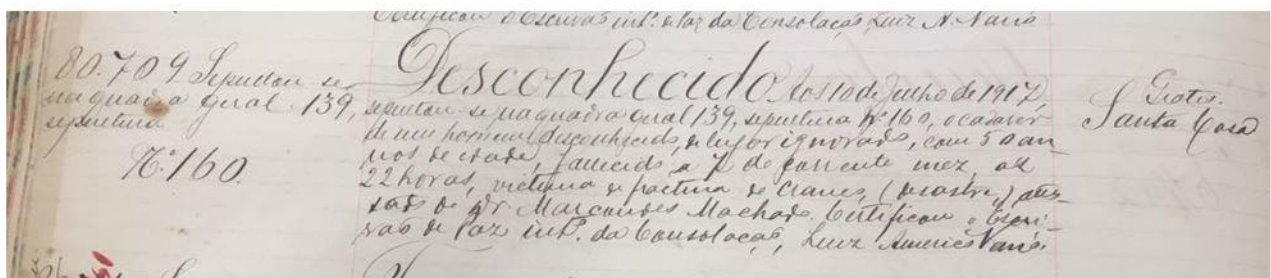 Certificou o Escrivão intº. de Paz da Consolação Luiz A. Nanis
80.709 Sepultou-se
na quadra geral 139,
sepultura
Nº 160.
Desconhecido. Aos 10 de Julho de 1917,
sepultou-se na quadra geral 139, sepultura Nº 160, o cadaver
de um homem desconhecido, de ignorado, com 50 an
nos de idade, fallecido a 7 do corrente mez, as
22 horas, victima de fractura de craneo, (desastre) attes-
tado do Dr. Marcondes Machado. Certificou o Escri-
vão de Paz intº. da Consolação, Luiz Americo
Gratis.
Santa Casa